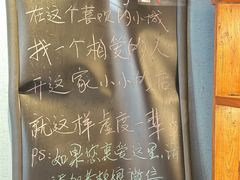 在这个喜欢的小城
找一个相爱的人
开这家小小的店
就这样虚度一辈
PS:如果您喜爱这里,请
微信